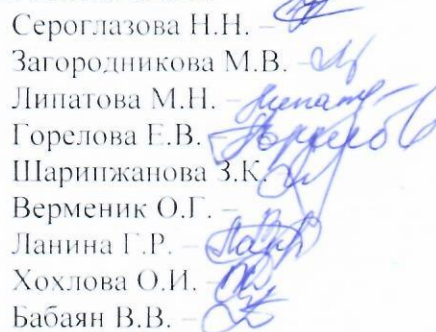 Сероглазова Н.Н. –
Загородникова М.В. –
Липатова М.Н. –
Горелова Е.В.
Шарипжанова З.К.
Верменик О.Г. –
Ланина Г.Р. –
Хохлова О.И. –
Бабаян В.В. –